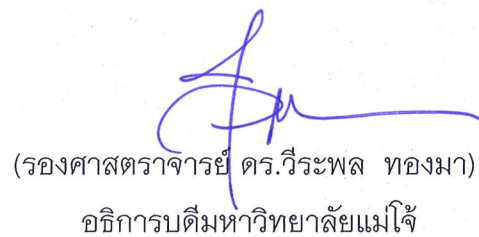 (รองศาสตราจารย์ ดร.วีระพล  ทองมา)
อธิการบดีมหาวิทยาลัยแม่โจ้